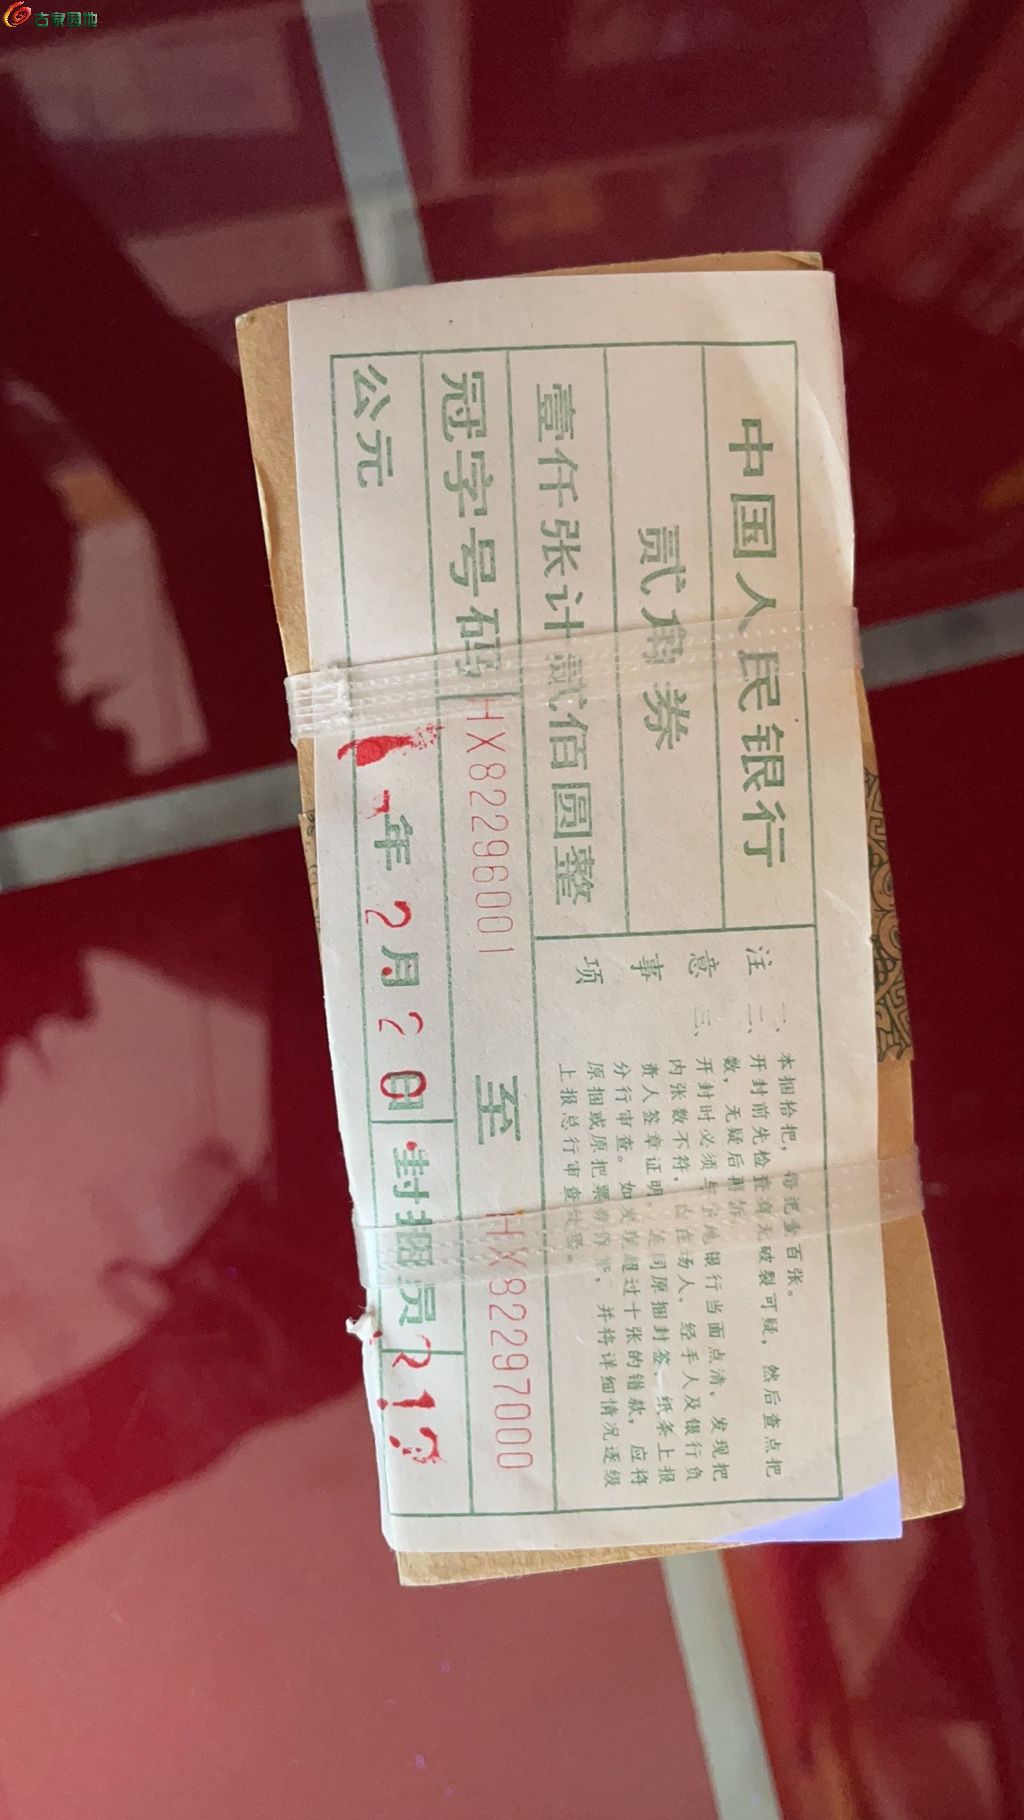 古泉园地
中国人民银行
贰角券
壹仟张计贰佰圆整
冠字号码 HX82296001 至 HX82297000
公元 年2月2日 封捆员 212
注意事项
一、本捆拾把，每把壹百张。
二、开封前先检查有无破裂可疑，然后查点把
数，无疑后再拆。
三、开封时必须与当地银行当面点清、发现把
内张数不符，由在场人、经手人及银行负
责人签章证明，连同原捆封签、纸条上报
分行审查。如发现超过十张的错款，应将
原捆或原把票券作，并将详细情况逐级
上报总行审查处理。